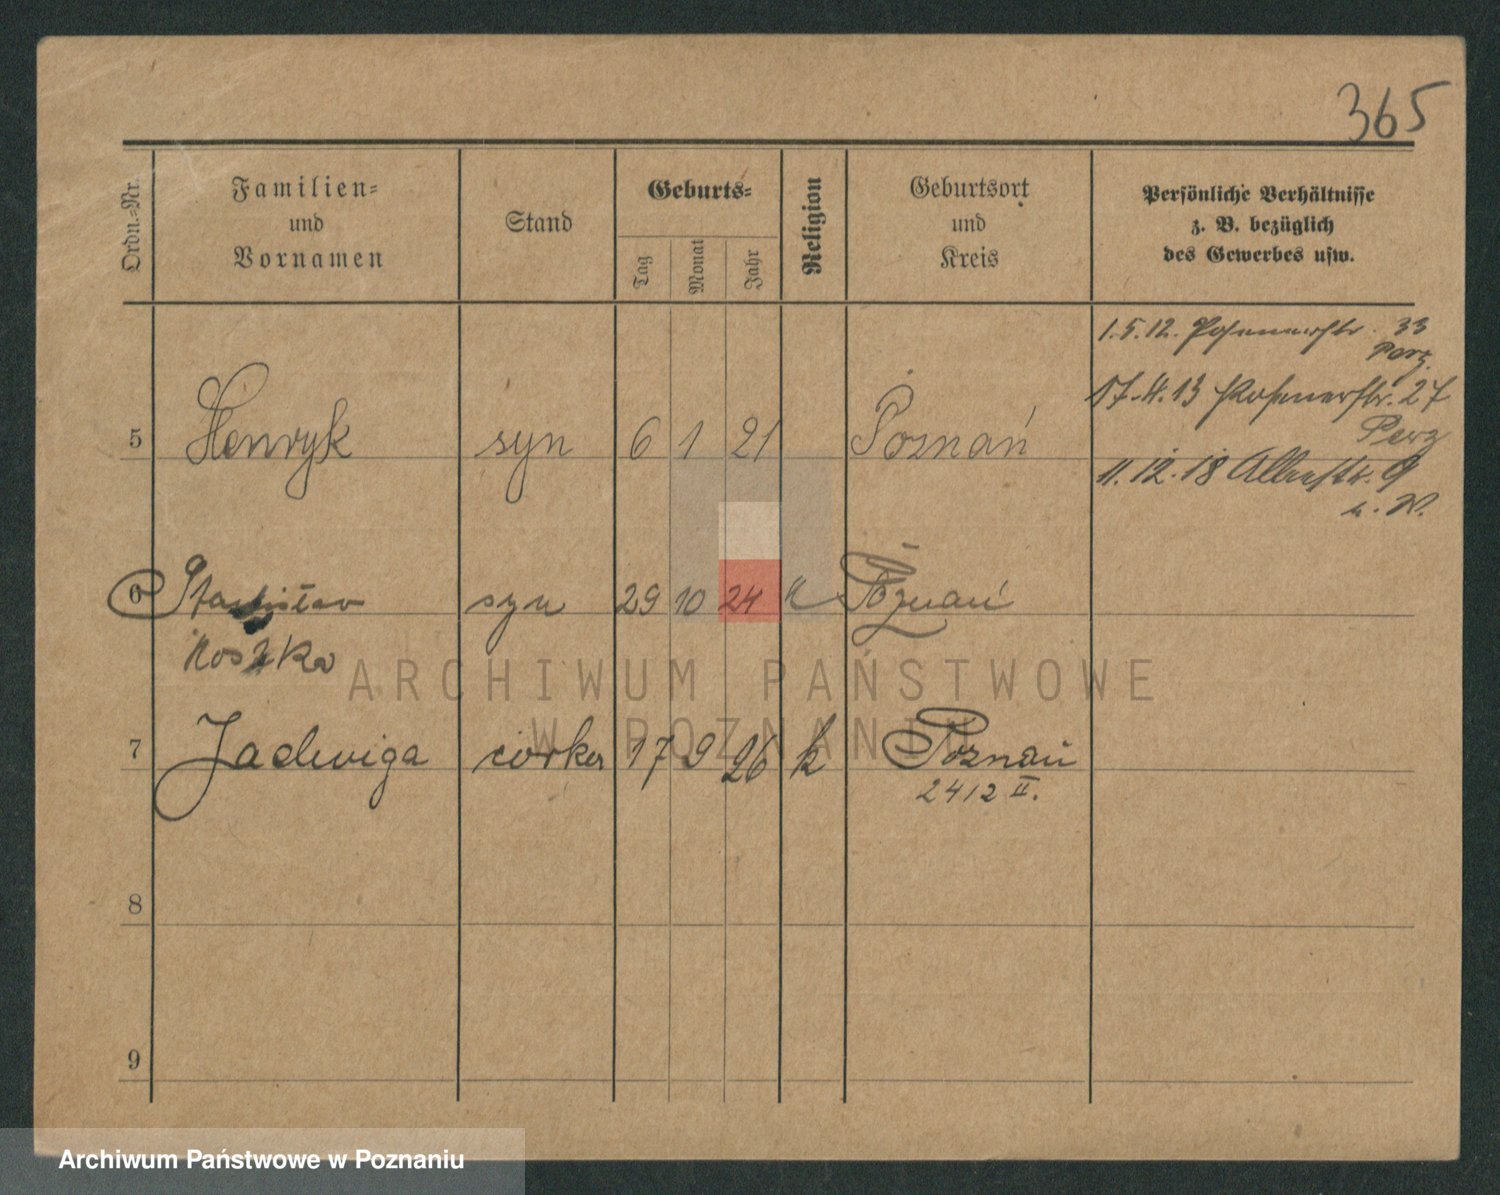 365
Ordn.-Nr.
Familien-
und
Vornamen
Stand
Geburts-
Tag
Monat
Jahr
Religion
Geburtsort
und
Kreis
Persönliche Verhältnisse
z. B. bezüglich
des Gewerbes usw.
1.5.12. Posenerstr. 33
17.4.13 Posenerstr. 27
11.12.18 9
5 Henryk syn 6 1 21 Poznań
6 Stanisław syn 29 10 24 k Poznań
Kostka
7 Jadwiga córka 17 9 26 k Poznań
2412 II.
8
9
ARCHIWUM PAŃSTWOWE
W POZNANIU
Archiwum Państwowe w Poznaniu